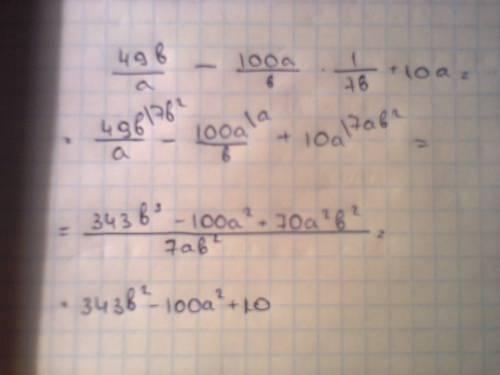 49в/a − 100a/в · 1/7в + 10a =
= 49в^(\7в²)/a − 100a^(\a)/в + 10a^(\7aв²) =
= (343в³ − 100a² + 70a²в²)/7aв² =
= 343в² − 100a² + 10